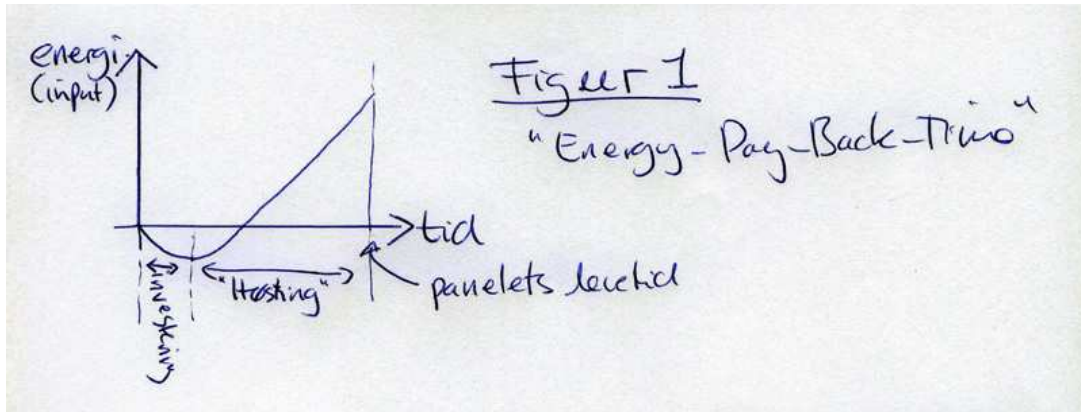 energi
(input)
Figur 1
"Energy-Pay-Back-Time"
tid
investering
"Høsting"
panelets levetid